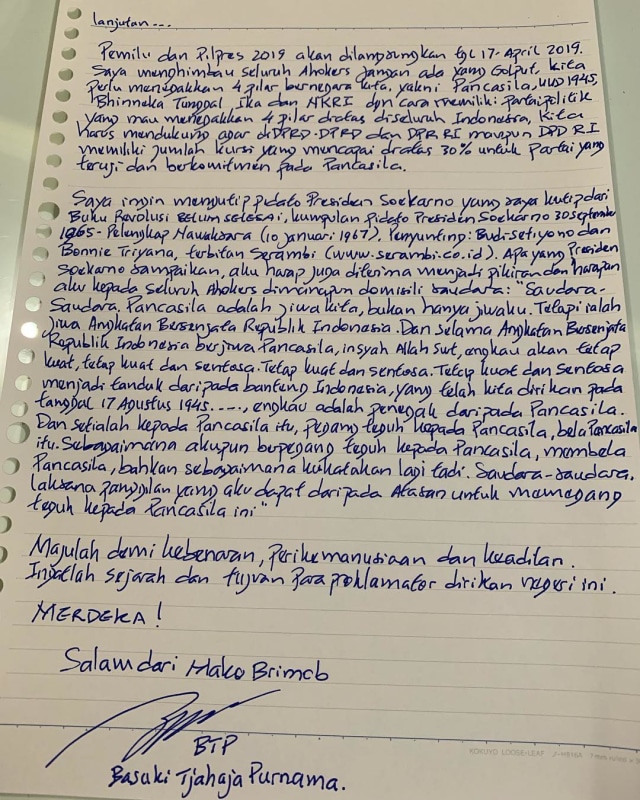 lanjutan...
Pemilu dan Pilpres 2019 akan dilangsungkan tgl 17-April 2019.
Saya menghimbau seluruh Ahokers jangan ada yang Golput, kita
perlu menegakkan 4 pilar bernegara kita, yakni Pancasila, UUD 1945,
Bhinneka Tunggal Ika dan NKRI dgn cara memilih partai politik
yang mau menegakkan 4 pilar diatas diseluruh Indonesia, kita
harus mendukung agar di DPRD-DPRD dan DPR RI maupun DPD RI
memiliki jumlah kursi yang mencapai diatas 30% untuk Partai yang
teruji dan berkomitmen pada Pancasila.
Saya ingin mengutip pidato Presiden Soekarno yang saya kutip dari
Buku Revolusi Belum selesai, kumpulan pidato Presiden Soekarno 30 September
1965 - Pelengkap Nawaksara (10 Januari 1967), Penyunting: Budi Setiyono dan
Bonnie Triyana, terbitan Serambi (www.serambi.co.id). Apa yang Presiden
Soekarno sampaikan, aku harap juga diterima menjadi pikiran dan harapan
aku kepada seluruh Ahokers dimanapun domisili saudara: "Saudara-
Saudara. Pancasila adalah jiwa kita, bukan hanya jiwaku. Tetapi ialah
jiwa Angkatan Bersenjata Republik Indonesia. Dan selama Angkatan Bersenjata
Republik Indonesia berjiwa Pancasila, insyah Allah Swt, engkau akan tetap
kuat, tetap kuat dan sentosa. Tetap kuat dan sentosa. Tetap kuat dan sentosa
menjadi tanduk daripada banteng Indonesia, yang telah kita dirikan pada
tanggal 17 Agustus 1945...., engkau adalah penegak daripada Pancasila.
Dan setialah kepada Pancasila itu, pegang teguh kepada Pancasila, bela Pancasila
itu. Sebagaimana akupun berpegang teguh kepada Pancasila, membela
Pancasila, bahkan sebagaimana kukatakan lagi tadi. Saudara-saudara.
laksana panggilan yang aku dapat daripada Atasan untuk memegang
teguh kepada Pancasila ini"
Majulah demi kebenaran, perikemanusiaan dan keadilan.
Ingatlah sejarah dan tujuan para proklamator dirikan negeri ini.
MERDEKA!
Salam dari Mako Brimob
BTP
Basuki Tjahaja Purnama.
KOKUYO LOOSE-LEAF